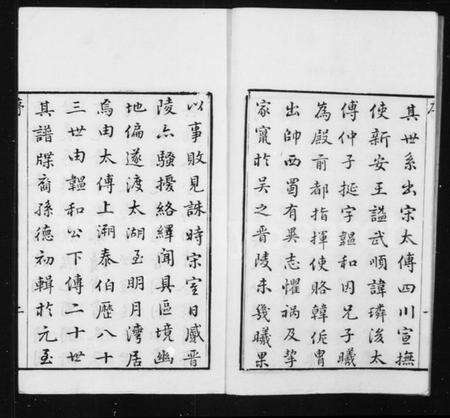 其世系出宋太傅四川宣撫
使新安王謚武順諱璘後太
傅仲子挺字韞和因兄子曦
為殿前都指揮使賂韓侂冑
出帥西蜀有異志懼禍及挈
家竄於吳之晉陵未幾曦果
以事敗見誅時宋室日蹙晉
陵亦騷擾絡繹聞具區境幽
地偏遂渡太湖至明月灣居
焉由太傅上溯泰伯歷八十
三世由韞和公下傳二十世
其譜牒裔孫德初輯於元至